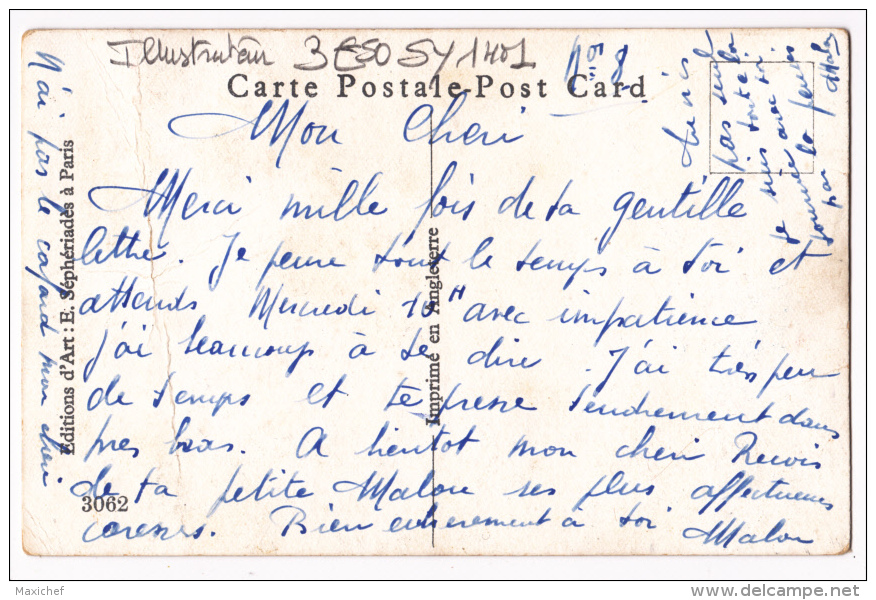 Illustrateur BESO SY 1401
Carte Postale-Post Card
Mon Cheri
Merci mille fois de ta gentille
lettre. Je pense tout le temps à toi et
attends Mercredi 10H avec impatience
j'ai beaucoup à te dire. J'ai très peu
de temps et te presse tendrement dans
mes bras. A bientot mon cheri Recois
de ta petite Malou ses plus affectueuses
caresses. Bien entierement à toi
Malou
N'ai pas le cafard mon cheri
tu n'es
pas seul
toute
je suis avec toi
par la pensée
Malou
Editions d'Art : E. Sépheriadès à Paris
Imprimé en Angleterre
3062
Maxichef
delcampe.net